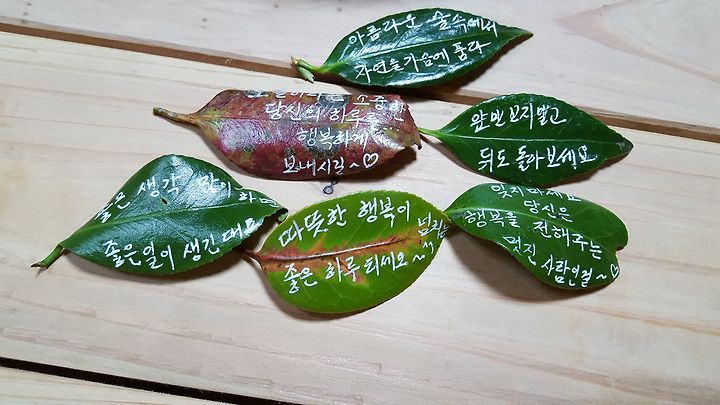 아름다운 숲속에서
자연을 가슴에 품다
오늘이라는 소중한
당신의 하루를
행복하게
보내시길~♡
앞만 보지말고
뒤도 돌아보세요
좋은 생각 많이 하면
좋은일이 생긴대요
따뜻한 행복이
넘치는
좋은 하루 되세요~^^
잊지마세요
당신은
행복을 전해주는
멋진 사람인걸~♡